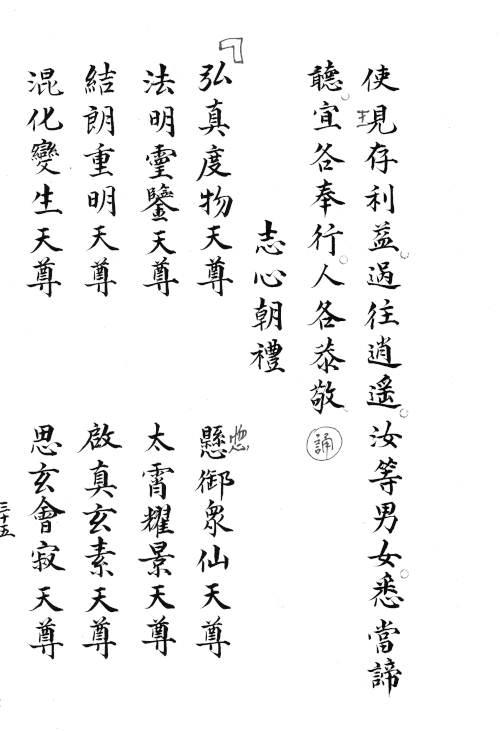 使見存利益。過往逍遙。汝等男女。悉當諦
聽。宜各奉行。人各恭敬 誦
志心朝禮
弘真度物天尊 懸御眾仙天尊
法明靈鑒天尊 太霄耀景天尊
結朗重明天尊 啟真玄素天尊
混化變生天尊 思玄會寂天尊
三十五